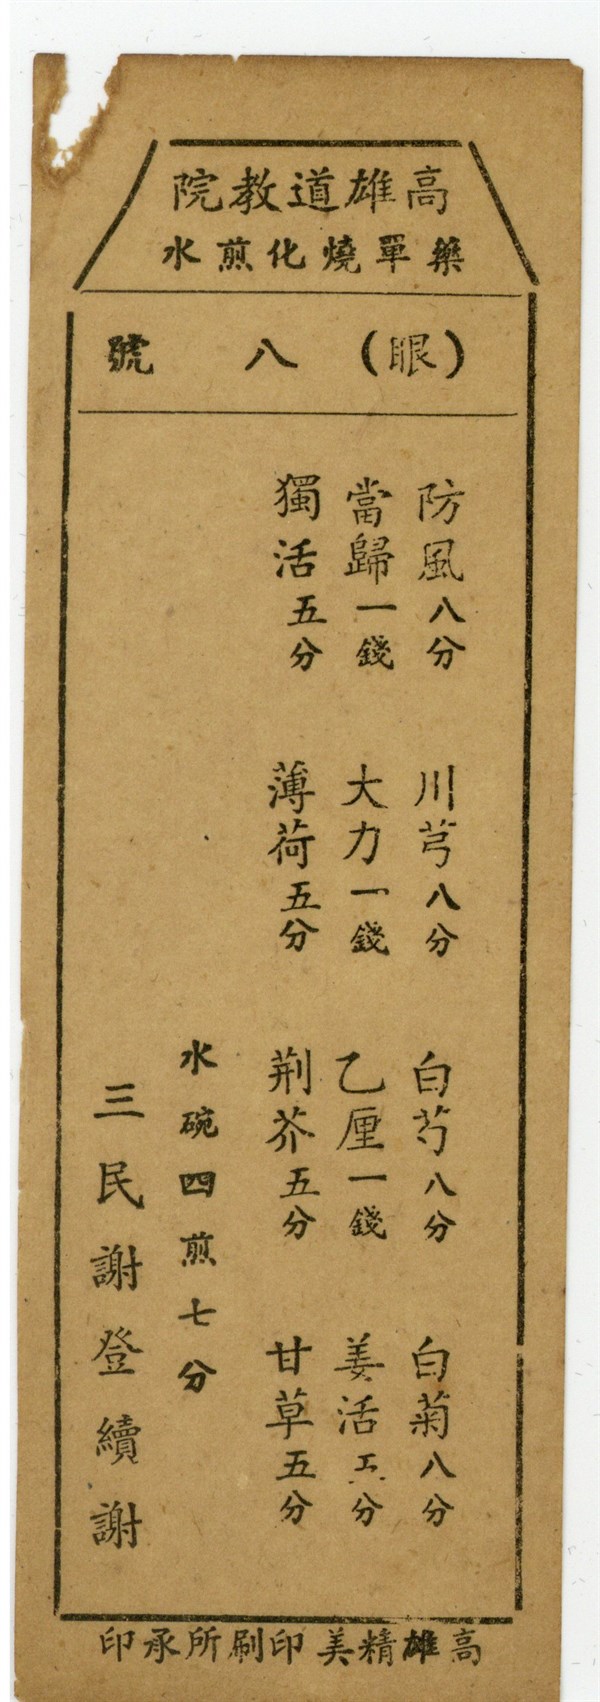 高雄道教院
藥單燒化煎水
(眼)八號
防風八分 川芎八分 白芍八分 白菊八分
當歸一錢 大力一錢 乙厘一錢 姜活五分
獨活五分 薄荷五分 荆芥五分 甘草五分
水碗四煎七分
三民謝登續謝
高雄精美印刷所承印